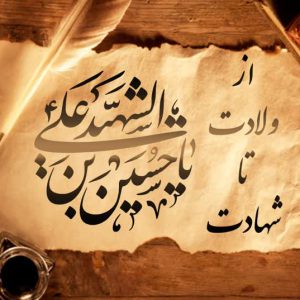 از
ولادت
تا
شهادت
یا حسین بن علی الشهید